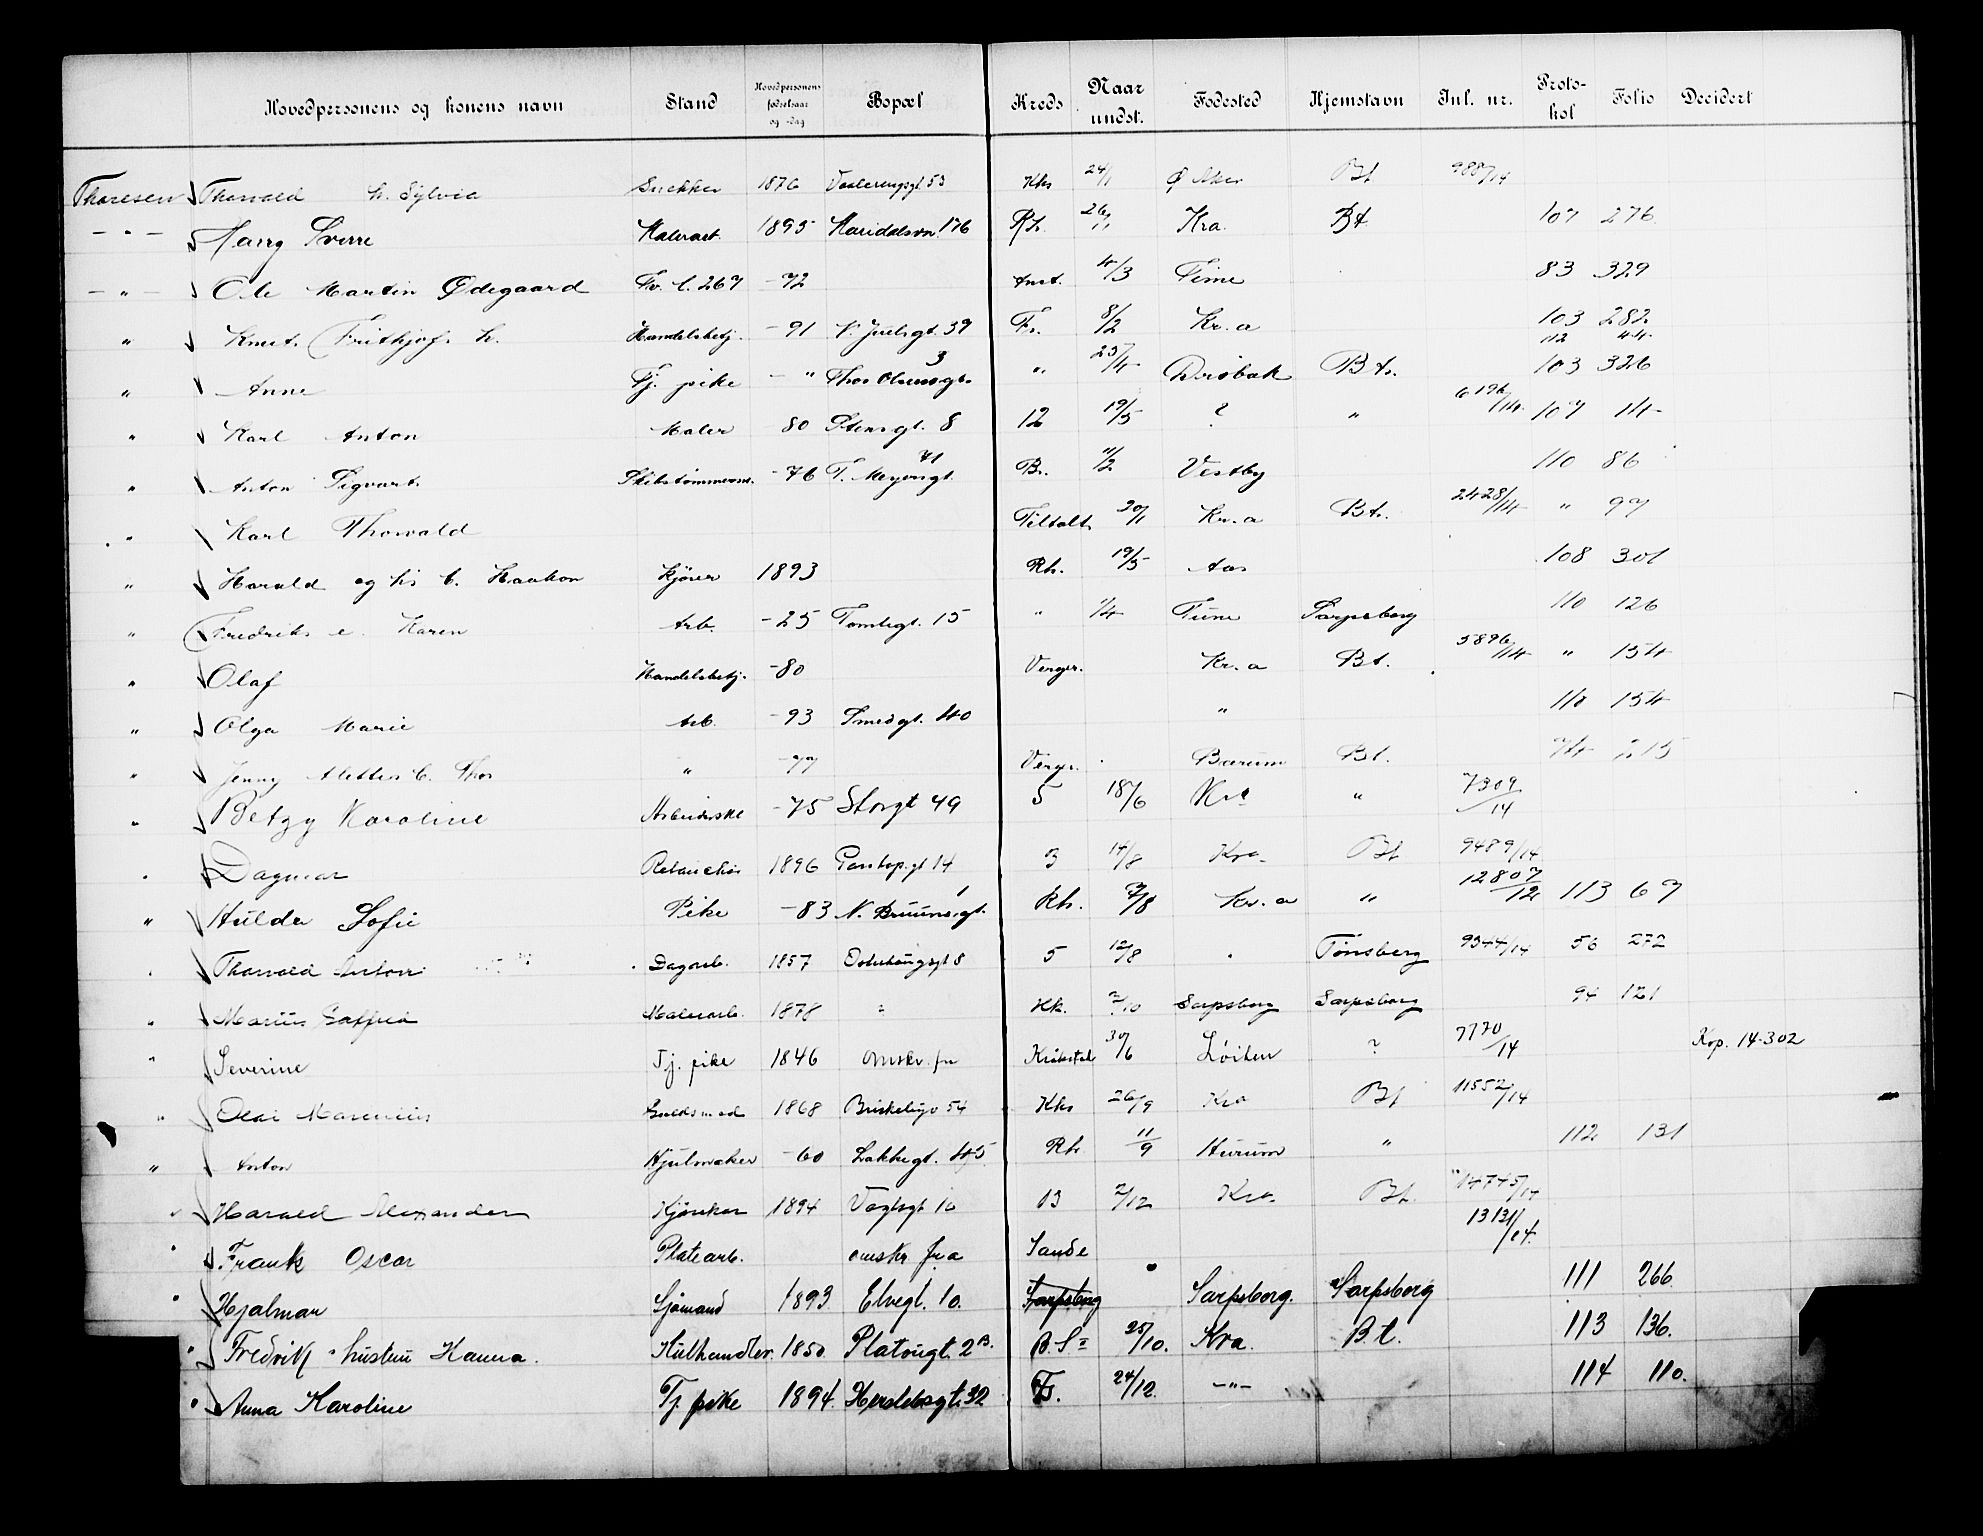 Hovedpersonens og konens navn Stand Hovedpersonens fødselsaar og -dag Bopæl Kreds Naar undst. Fødested Hjemstavn Inl. nr. Proto-kol Folio Decidert
Thoresen Thorvald h. Sylvia Snekker 1876 Vaalerengsgt 53 Khs 24/1 Ø Aker Bt 988/14
— " — Harry Sverre Malerarb. 1895 Maridalsvn 176 Rh. 26/1 Kra. Bt. 107 276
— " — Ole Martin Ødegaard Fv. l. 267 -72 Anst. 4/3 Time 83 329
" Knut Frithjof h. Handelsbetj. -91 N. Juelsgt. 39 Fr. 8/2 Kr.a 103 282 112 44
" Anne Tj. pike - " Thor Olsensgt. 3 " 25/4 Drøbak Bt. 103 326
" Karl Anton Maler -80 Stensgt. 8 12 19/5 ? " 6196/14 107 14
" Anton Sigvart Skibstømmerm. -76 T. Meyersgt. 71 Br. 11/2 Vestby 110 86
" Karl Thorvald Tiltalt 30/1 Kr.a Bt. 2428/14 " 97
" Harald og hs b. Haakon Kjører 1893 Rh. 19/5 Aas 108 301
" Fredrik e. Karen Arb. -25 Tomtegt. 15 " 1/4 Tune Sarpsborg 110 126
" Olaf Handelsbetj. -80 Verger. Kr.a Bt. 5896/14 " 154
" Olga Marie Arb. -93 Smedgt. 40 " 110 154
" Jenny Alettes b. Thor " -77 Verger. Bærum Bt. 74 215
" Betzy Karoline Arbeiderske -75 Storgt 49 5 18/6 Kra " 7309/14
" Dagmar 1896 14 3 14/8 Kra. Bt 9489/14
" Hulda Sofie Pike -83 N. Bruunsgt. 1 Rh. 7/8 Kr.a " 12807/12 113 67
" Thorvald Anton Dagarb. 1857 Osterhausgt 8 5 12/8 " Tønsberg 9344/14 56 272
" Marius Gotfred Malerarb. 1878 ? Hk. 2/10 Sarpsborg Sarpsborg 94 121
" Severine Tj. pike 1846 omskr. fra Kråkstad 30/6 Løiten ? 7770/14 Kop. 14-302
" Olai Marenius Guldsmed 1868 Briskebyv 54 Khs 26/9 Kra Bt 11552/14
" Anton Hjulmaker -60 Lakkegt. 45 Rh 11/9 Hurum " 112 131
" Harald Alexander Kjørekar 1894 Vogtsgt 10 13 2/12 Kra. Bt. 14745/14
" Frank Oscar Platearb. omskr fra Sande 13131/14.
" Hjalmar Sjømand 1893 Elvegt. 10. Sarpsborg Sarpsborg. Sarpsborg 111 266
" Fredrik " hustru Hanna. Kulhandler. 1850. Platougt. 2B. B. S= 25/10. Kra. B.t. 113 136.
" Anna Karoline Tj. pike 1894. Herslebsgt. 32 Fr. 24/12. — " — 114 110.